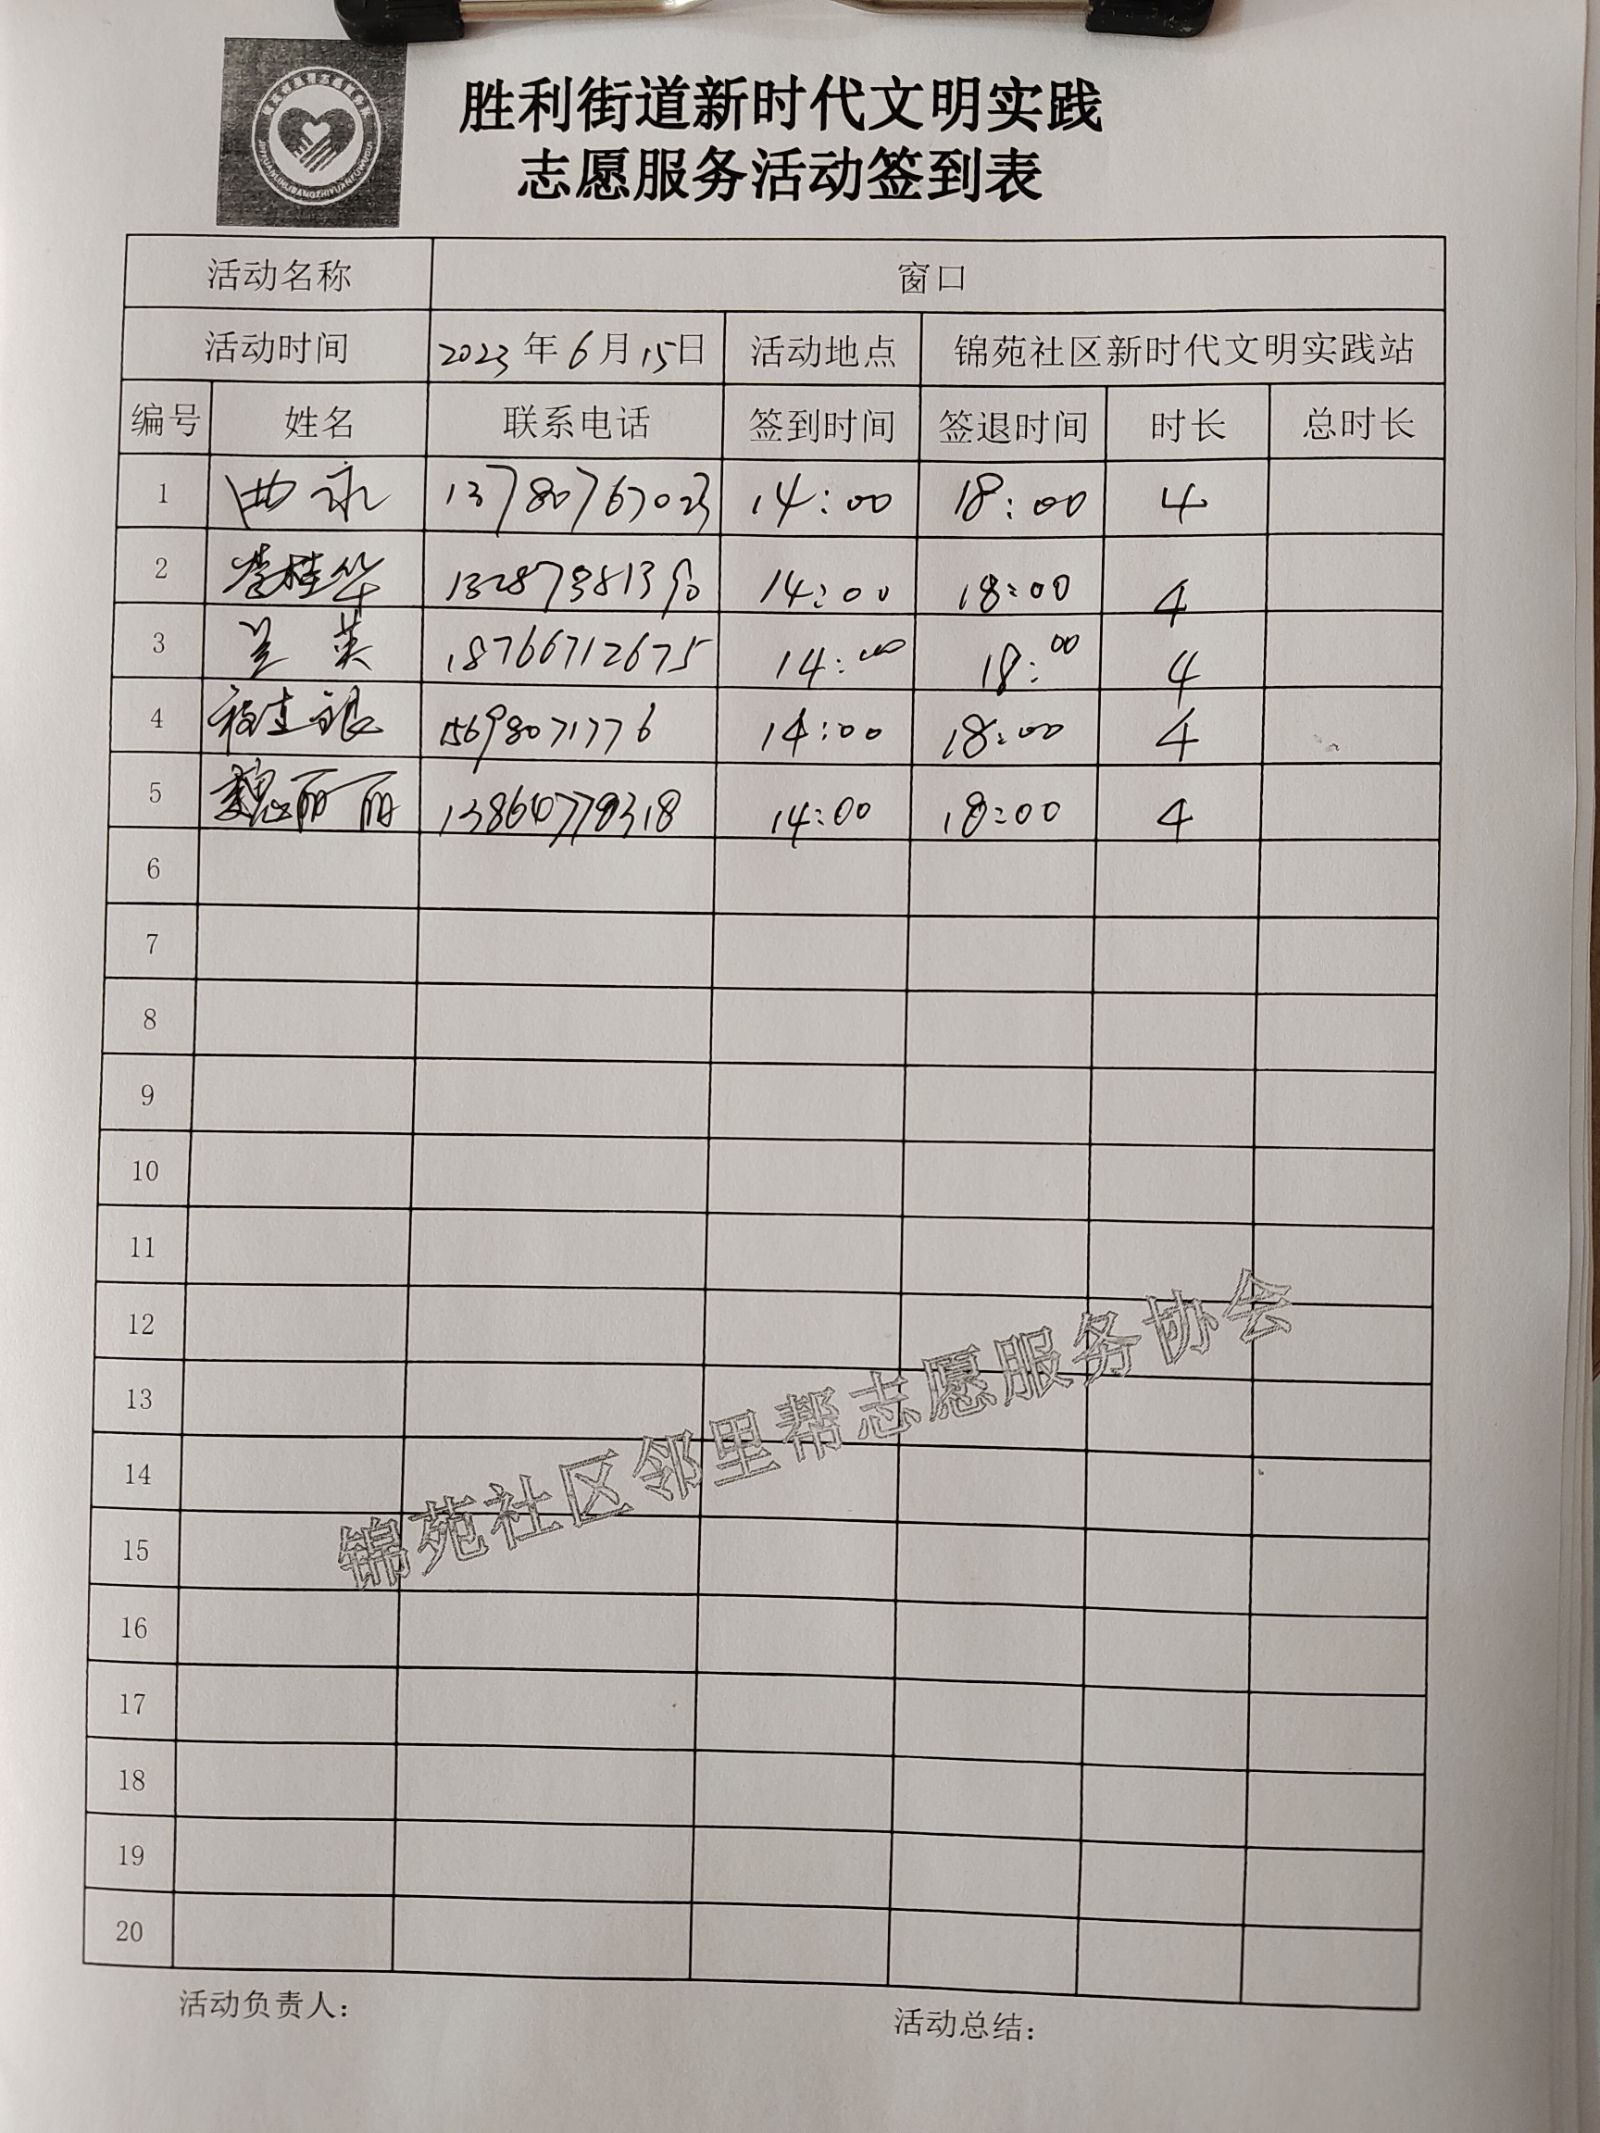 胜利街道新时代文明实践
志愿服务活动签到表
活动名称 窗口
活动时间 2023年6月15日 活动地点 锦苑社区新时代文明实践站
编号 姓名 联系电话 签到时间 签退时间 时长 总时长
1 曲永 13780767023 14:00 18:00 4
2 桂华 13287381390 14:00 18:00 4
3 兰英 18766712675 14:00 18:00 4
4 15698071776 14:00 18:00 4
5 魏丽丽 138640778318 14:00 18:00 4
6
7
8
9
10
11
12
13
14
15
16
17
18
19
20
锦苑社区邻里帮志愿服务协会
活动负责人: 活动总结: